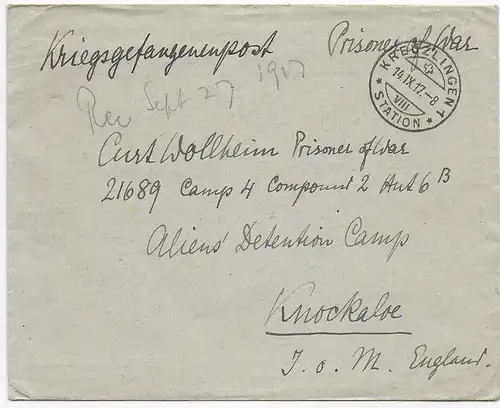 Kriegsgefangenenpost Prisoner of War
KREUZLINGEN 1
14.IX.17.-8
VIII
* STATION *
Rec Sept 27 1917
Curt Wollheim Prisoner of War
21689 Camp 4 Compound 2 Hut 6 B
Aliens' Detention Camp
Knockaloe
I. o. M. England.